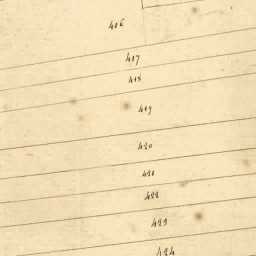 416
417
418
419
420
421
422
423
424